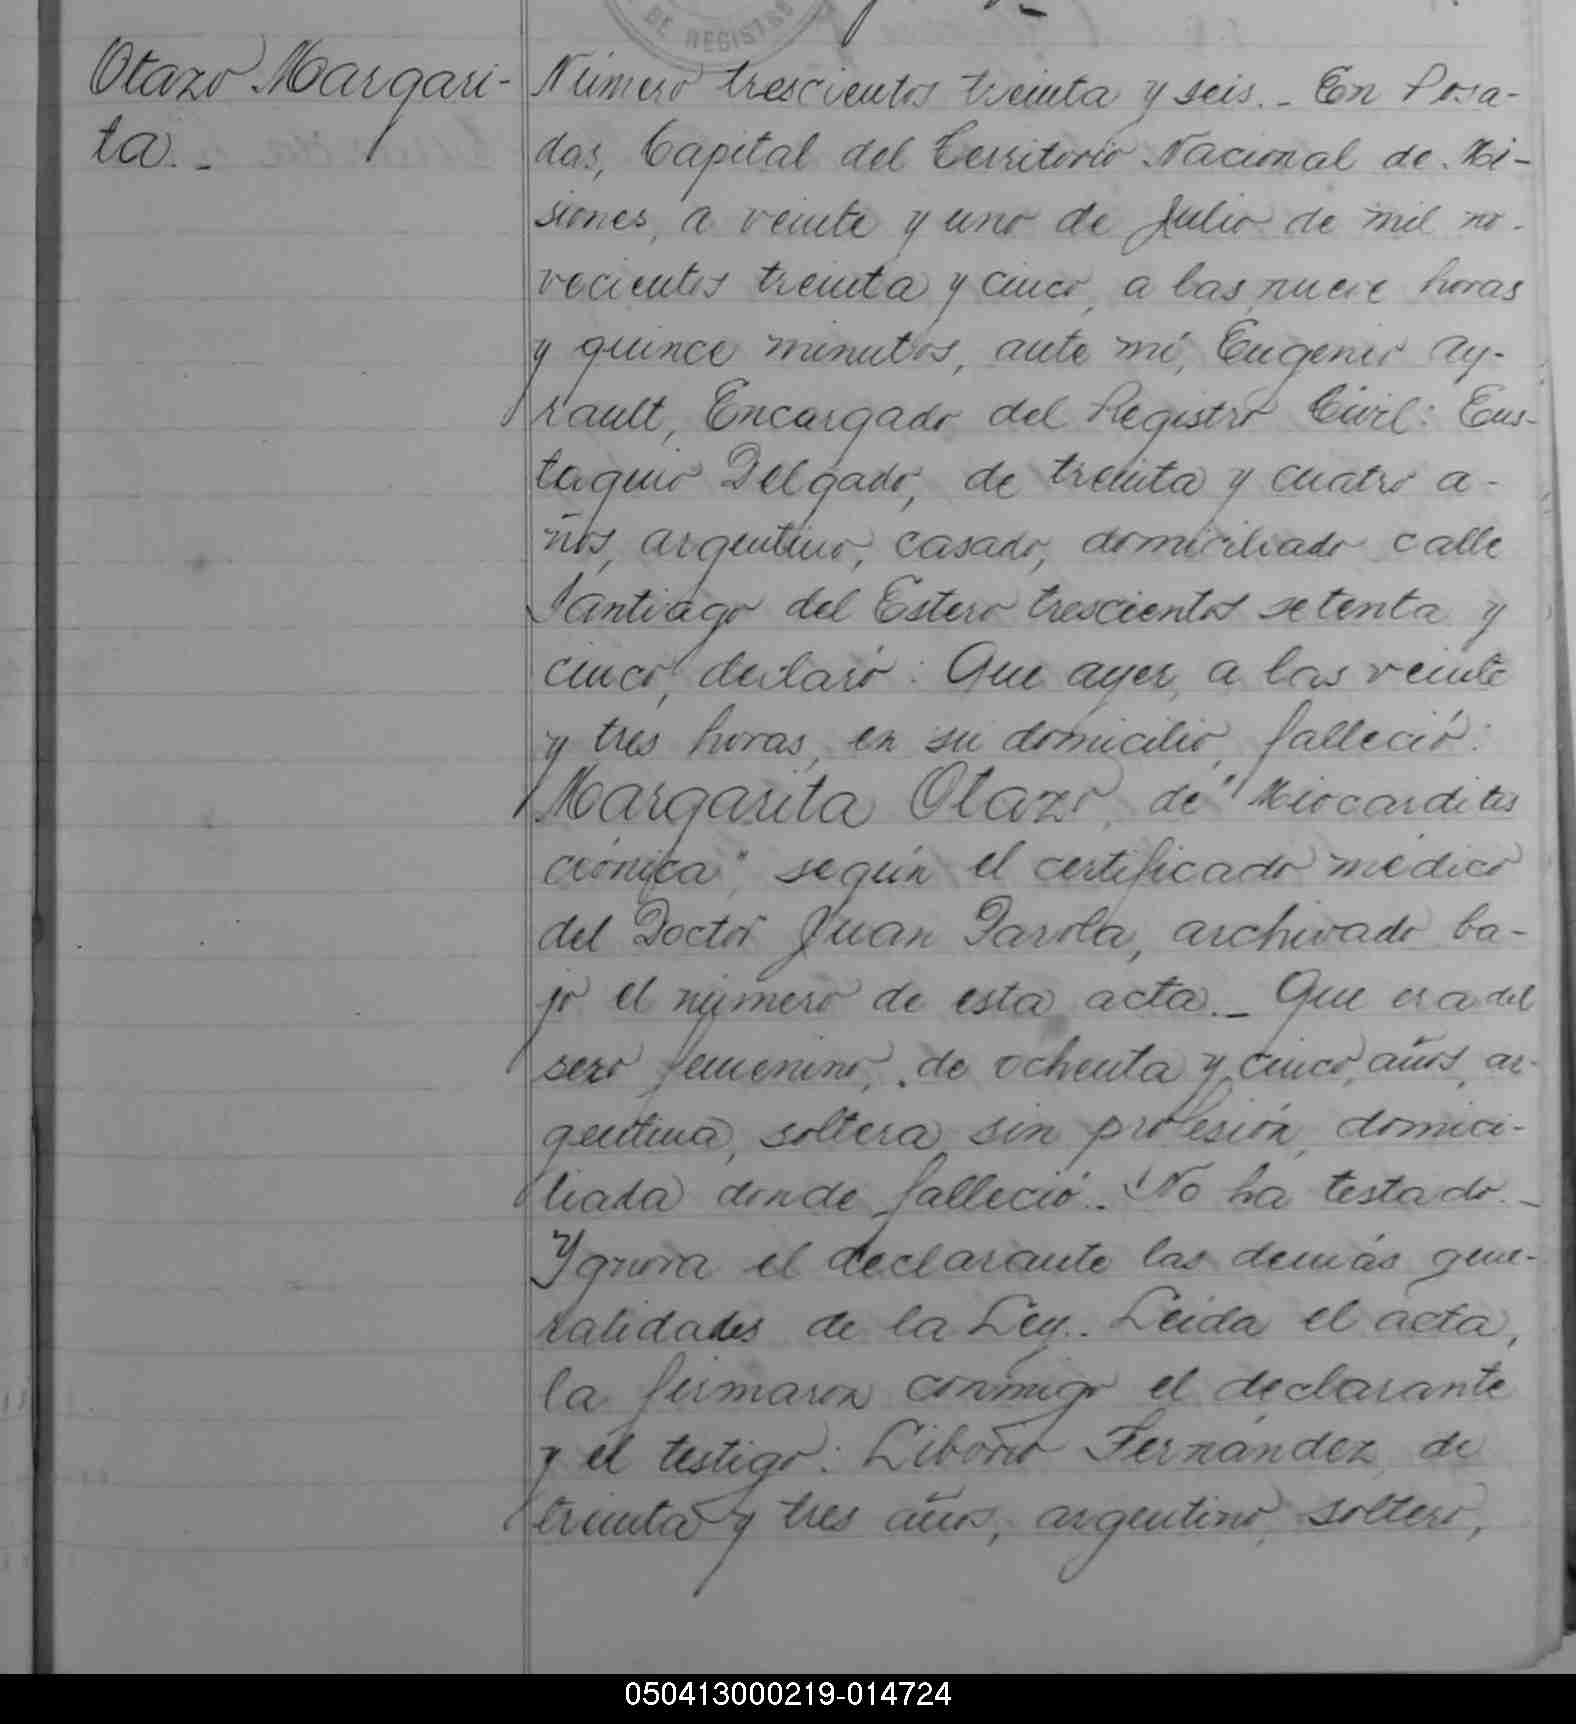 DE REGISTRO
Otazo Margari-
ta.-
Número trescientos treinta y seis.- En Posa-
das, Capital del Territorio Nacional de Mi-
siones, a veinte y uno de Julio de mil no-
vecientos treinta y cinco, a las nueve horas
y quince minutos, ante mí, Eugenio Ay-
rault, Encargado del Registro Civil: Eus-
taquio Delgado, de treinta y cuatro a-
ños, argentino, casado, domiciliado calle
Santiago del Estero trescientos setenta y
cinco, declaró: Que ayer, a las veinte
y tres horas, en su domicilio, falleció:
Margarita Otazo, de "Miocarditis
crónica", según el certificado médico
del Doctor Juan Parola, archivado ba-
jo el número de esta acta.- Que era del
sexo femenino, de ochenta y cinco años, ar-
gentina, soltera, sin profesión, domici-
liada donde falleció.- No ha testado.-
Ygnora el declarante las demás gene-
ralidades de la Ley.- Leida el acta,
la firmaron conmigo el declarante
y el testigo: Liborio Fernández, de
treinta y tres años, argentino, soltero,
050413000219-014724